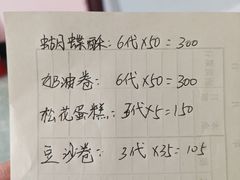 蝴蝶酥:6代×50=300
奶油卷:6代×50=300
松花蛋糕:3代×5=150
豆沙卷:3代×35=105